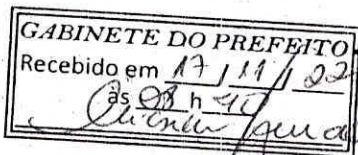 GABINETE DO PREFEITO
Recebido em 17 / 11 / 22
às 08 h 40